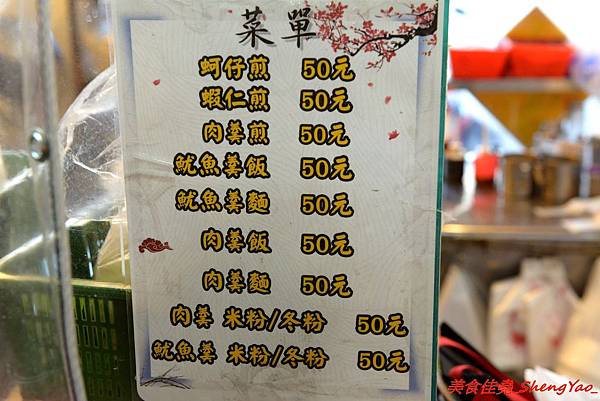 菜單
蚵仔煎 50元
蝦仁煎 50元
肉羹煎 50元
魷魚羹飯 50元
魷魚羹麵 50元
肉羹飯 50元
肉羹麵 50元
肉羹 米粉/冬粉 50元
魷魚羹 米粉/冬粉 50元
美食佳鱻_ShengYao_